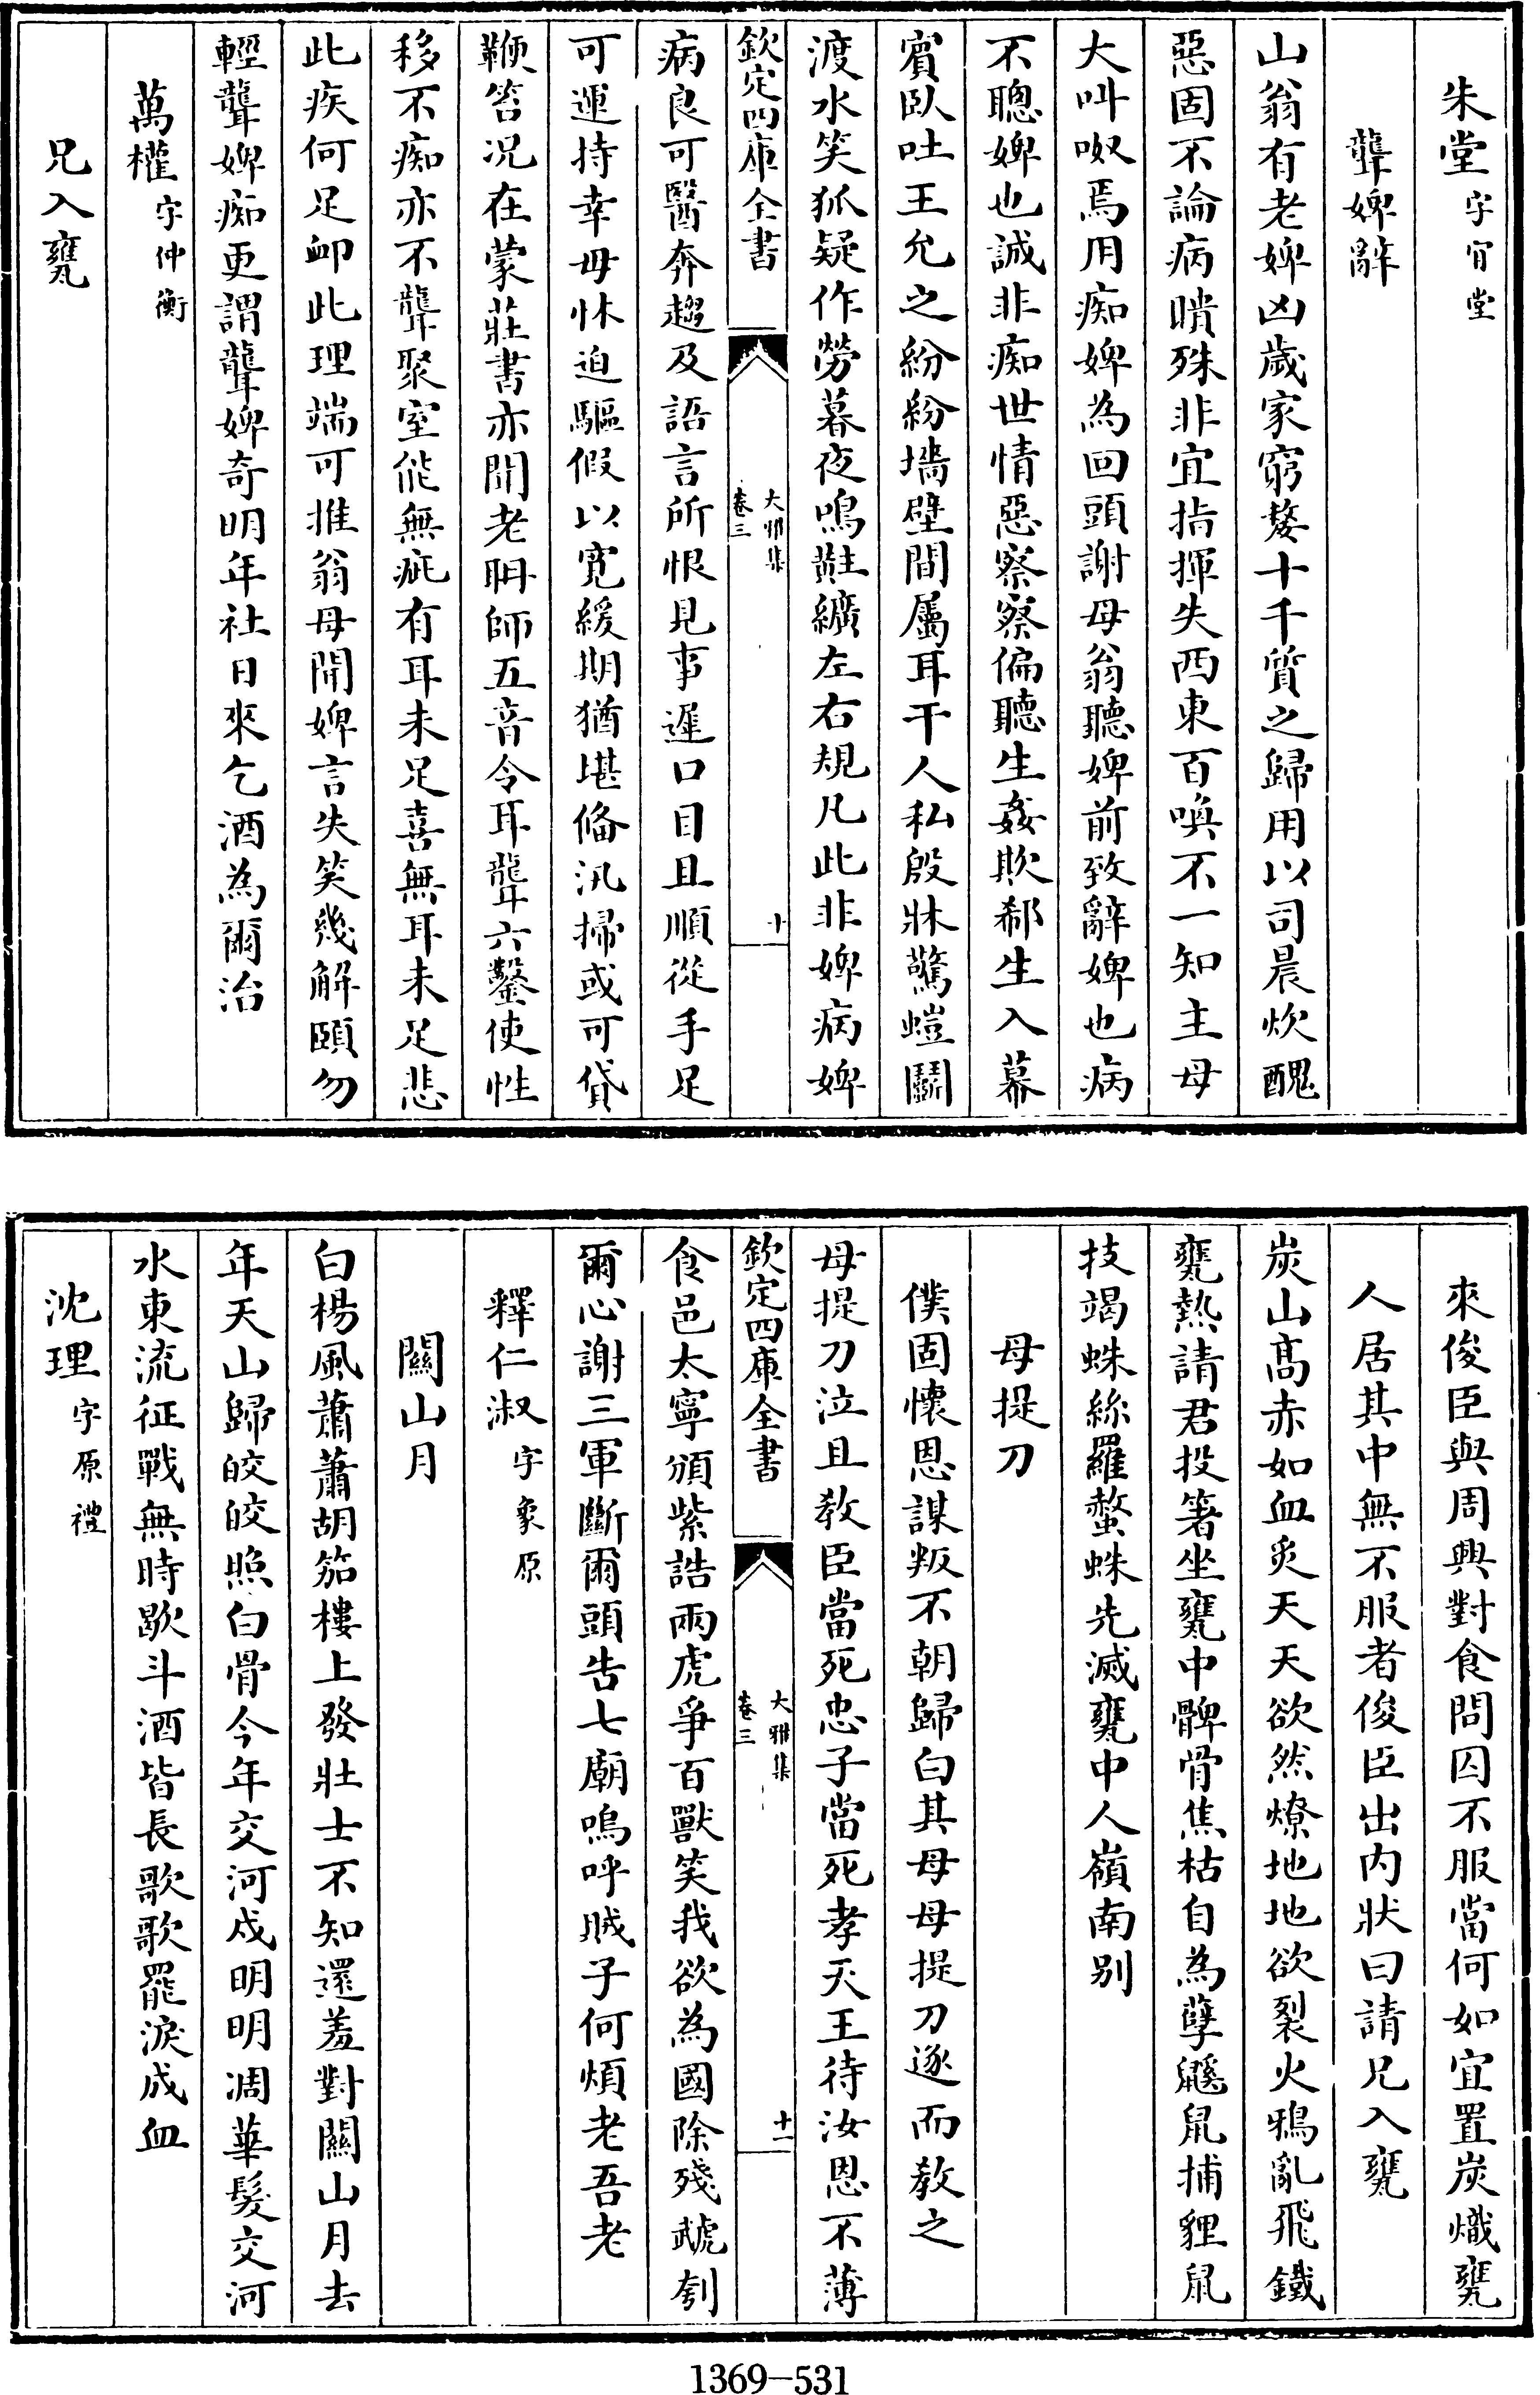 朱堂字宵堂
聾婢辭
山翁有老婢凶歲家窮嫠十千質之歸用以司晨炊醜
惡固不論病聵殊非宜指揮失西東百喚不一知主母
大呌呶焉用痴婢為回頭謝母翁聽婢前致辭婢也病
不聰婢也誠非痴世情惡察察偏聽生姦欺郗生入幕
賓臥吐王允之紛紛墻壁間屬耳干人私殷牀驚螘鬭
渡水笑狐疑作勞暮夜鳴黈纊左右規凡此非婢病婢
欽定四庫全書
大雅集
卷三
十
病良可醫奔趨及語言所恨見事遲口目且順從手足
可運持幸毋怵迫驅假以寛緩期猶堪俻汛掃或可貸
鞭笞况在蒙莊書亦聞老聃師五音令耳聾六鑿使性
移不痴亦不聾聚室能無疵有耳未足喜無耳未足悲
此疾何足䘏此理端可推翁母聞婢言失笑幾解頤勿
輕聾婢痴更謂聾婢奇明年社日來乞酒為爾治
萬權字仲衡
兄入甕
來俊臣與周興對食問囚不服當何如宜置炭熾甕
人居其中無不服者俊臣出内狀曰請兄入甕
炭山髙赤如血炙天天欲然燎地地欲裂火鴉亂飛鐵
甕熱請君投箸坐甕中髀骨焦枯自為孽鼷鼠捕貍鼠
技竭蛛絲羅螯蛛先滅甕中人嶺南别
母提刀
僕固懷恩謀叛不朝歸白其母母提刀逐而教之
母提刀泣且教臣當死忠子當死孝天王待汝恩不薄
欽定四庫全書
大雅集
卷三
十一
食邑太寧頒紫誥兩虎爭百獸笑我欲為國除殘虣刳
爾心謝三軍斷爾頭告七廟嗚呼賊子何煩老吾老
釋仁淑字象原
關山月
白楊風蕭蕭胡笳樓上發壯士不知還羞對關山月去
年天山歸皎皎照白骨今年交河戍明明凋華髮交河
水東流征戰無時歇斗酒皆長歌歌罷淚成血
沈理字原禮
1369-531